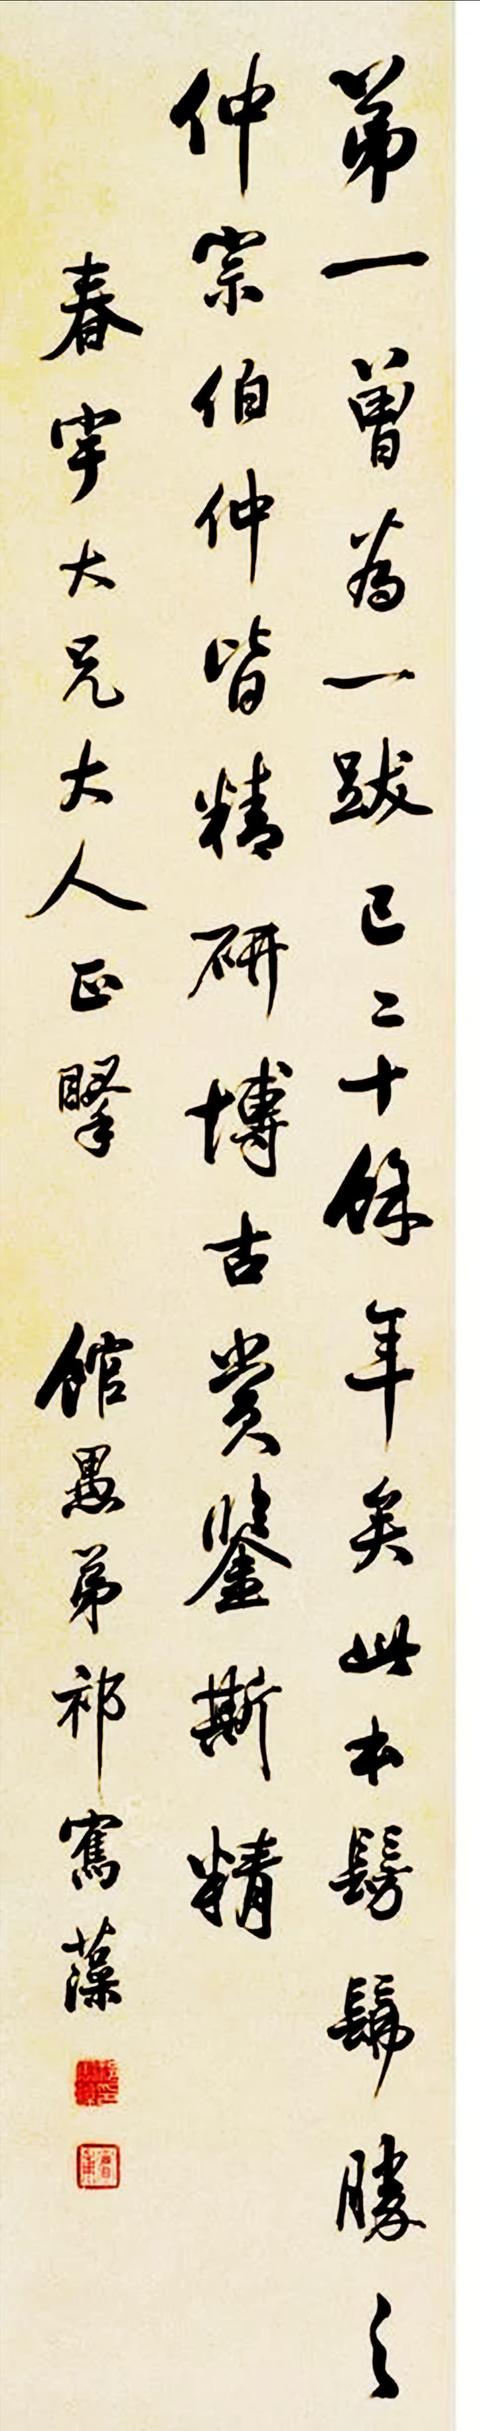 第一曾為一跋已二十餘年矣此本髣髴勝之
仲宗伯仲皆精研博古賞鑒斯精
春宇大兄大人正掔 館愚弟祁寯藻